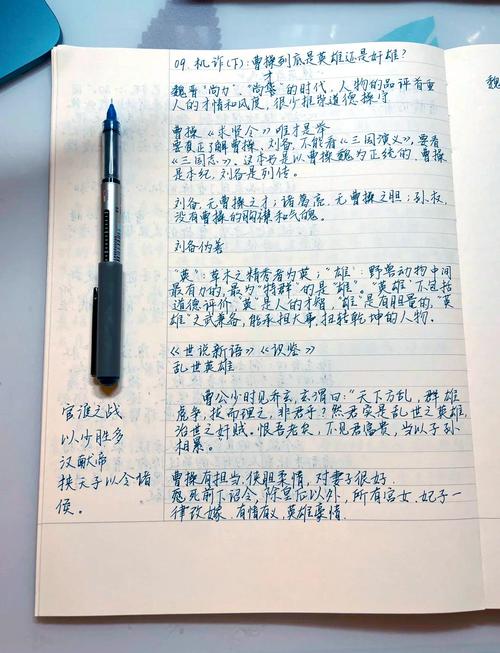 09. 机诈(下):曹操到底是英雄还是奸雄?
魏晋“尚力”、“尚才”的时代,人物的品评首重
人的才情和风度,很少推崇道德操守
曹操《求贤令》唯才是举
要真正了解曹操、刘备,不能看《三国演义》,要看
《三国志》。这本书是以曹操魏为正统的,曹操
是本纪,刘备是列传。
刘备,无曹操之才;诸葛亮,无曹操之胆;孙权,
没有曹操的胸襟和气魄。
刘备伪善
“英”:草木之精秀者为英;“雄”:野兽动物中间
最有力的,最为“特群”的是“雄”。“英雄”不包括
道德评价,“英”是人的才智,“雄”是有胆量的,“英
雄”文武兼备,能承担大事,扭转乾坤的人物。
《世说新语》《识鉴》
乱世英雄
曹公少时见乔玄,玄谓曰:“天下方乱,群雄
虎争,拨而理之,非君乎?然君实是乱世之英雄,
治世之奸贼。恨吾老矣,不见君富贵,当以子孙
相累。
曹操有担当,侠胆柔情,对妻子很好.
死前下诏令,除皇后以外,所有宫女、妃子一
律改嫁.有情有义,英雄豪情.
官渡之战
以少胜多
汉献帝
挟天子以令诸
侯。